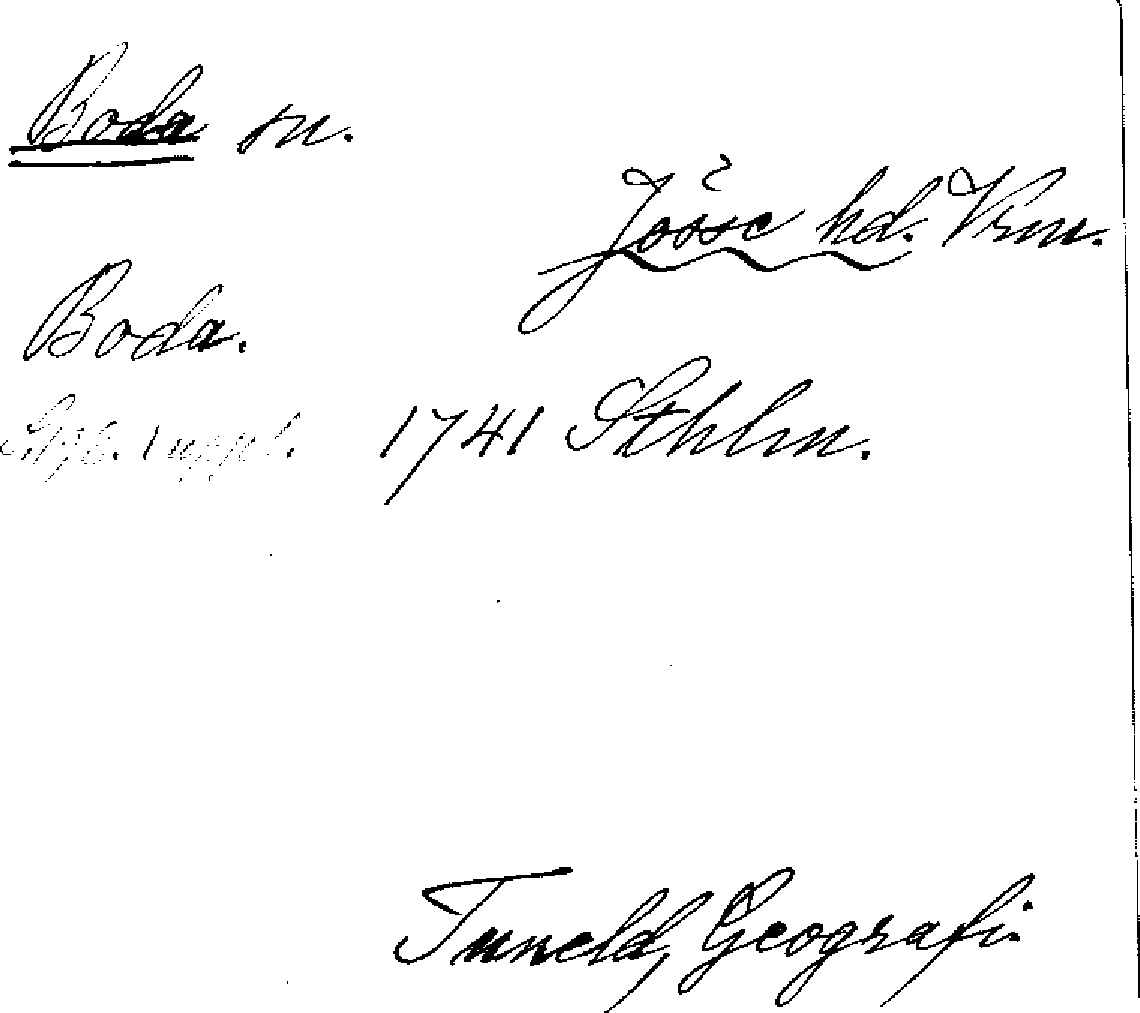 Boda sn.
Jösse hd. Vrm.
Boda.
1741 Sthlm.
Tuneld, Geografi.